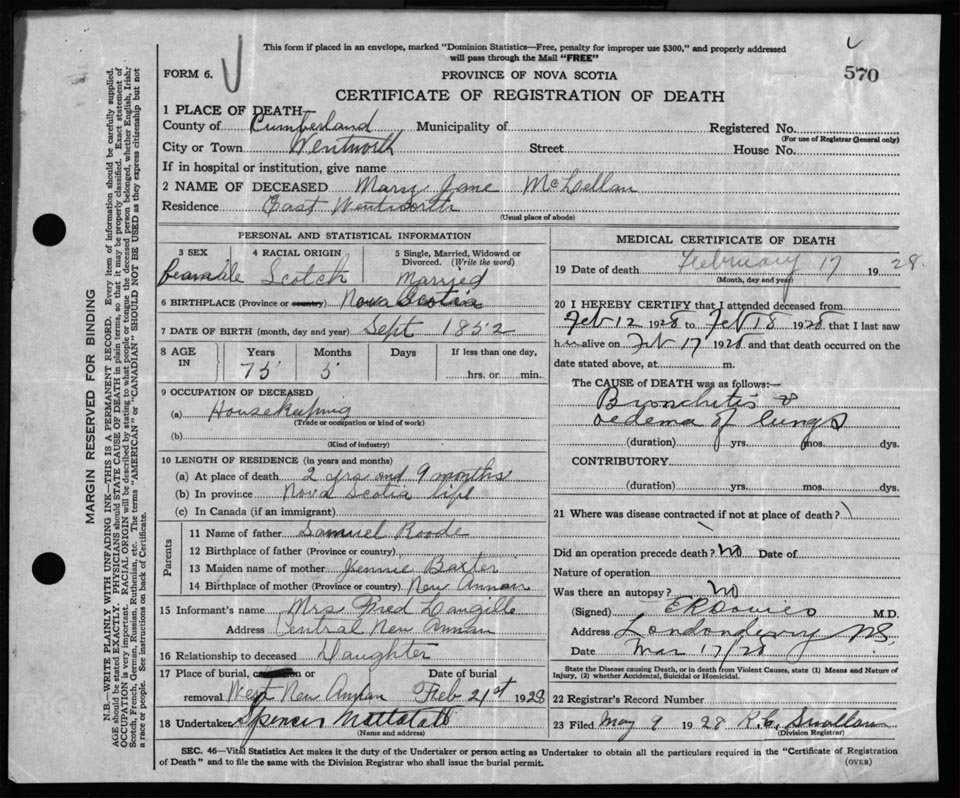 This form if placed in an envelope, marked "Dominion Statistics—Free, penalty for improper use $300," and properly addressed
will pass through the Mail "FREE"
FORM 6.
PROVINCE OF NOVA SCOTIA
570
CERTIFICATE OF REGISTRATION OF DEATH
1 PLACE OF DEATH—
County of Cumberland Municipality of Registered No.
(For use of Registrar General only)
City or Town Wentworth Street House No.
If in hospital or institution, give name
2 NAME OF DECEASED Mary Jane McLellan
Residence East Wentworth
(Usual place of abode)
PERSONAL AND STATISTICAL INFORMATION
3 SEX 4 RACIAL ORIGIN 5 Single, Married, Widowed or Divorced. (Write the word)
Scotch Married
6 BIRTHPLACE (Province or country) Nova Scotia
7 DATE OF BIRTH (month, day and year) Sept 1852
8 AGE IN Years Months Days If less than one day,
75 5 hrs. or min.
9 OCCUPATION OF DECEASED
(a) Housekeeping
(Trade or occupation or kind of work)
(b)
(Kind of industry)
10 LENGTH OF RESIDENCE (in years and months)
(a) At place of death 2 yrs and 9 months
(b) In province Nova Scotia life
(c) In Canada (if an immigrant)
Parents
11 Name of father Samuel Roode
12 Birthplace of father (Province or country)
13 Maiden name of mother Jennie Baxter
14 Birthplace of mother (Province or country) New Annan
15 Informant's name Mrs Fred Langille
Address Central New Annan
16 Relationship to deceased Daughter
17 Place of burial, or Date of burial
removal West New Annan Feb 21st 1928
18 Undertaker Spencer Mattatall
(Name and address)
MEDICAL CERTIFICATE OF DEATH
19 Date of death February 17 1928
(Month, day and year)
20 I HEREBY CERTIFY that I attended deceased from
Feb 12 1928 to Feb 18 1928 that I last saw
h alive on Feb 17 1928 and that death occurred on the
date stated above, at m.
The CAUSE of DEATH was as follows:—
Bronchitis &
oedema of lungs
(duration) yrs. mos. dys.
CONTRIBUTORY
(duration) yrs. mos. dys.
21 Where was disease contracted if not at place of death?
Did an operation precede death? No Date of
Nature of operation
Was there an autopsy? No
(Signed) E R Davies M.D.
Address Londonderry NS.
Date Mar 17/28
State the Disease causing Death, or in death from Violent Causes, state (1) Means and Nature of Injury, (2) whether Accidental, Suicidal or Homicidal.
22 Registrar's Record Number
23 Filed May 9 1928 R.C. Swallow
(Division Registrar)
SEC. 46—Vital Statistics Act makes it the duty of the Undertaker or person acting as Undertaker to obtain all the particulars required in the "Certificate of Registration
of Death" and to file the same with the Division Registrar who shall issue the burial permit.
(OVER)
MARGIN RESERVED FOR BINDING
N.B.—WRITE PLAINLY WITH UNFADING INK—THIS IS A PERMANENT RECORD. Every item of information should be carefully supplied.
AGE should be stated EXACTLY. PHYSICIANS should STATE CAUSE OF DEATH in plain terms, so that it may be properly classified. Exact statement of
OCCUPATION is very important. RACIAL ORIGIN will be described by stating to what people or tongue the deceased person belonged, whether English, Irish,
Scotch, French, German, Russian, Ruthenian, etc. The terms "AMERICAN" or "CANADIAN" SHOULD NOT BE USED as they express citizenship but not
a race or people. See instructions on back of Certificate.